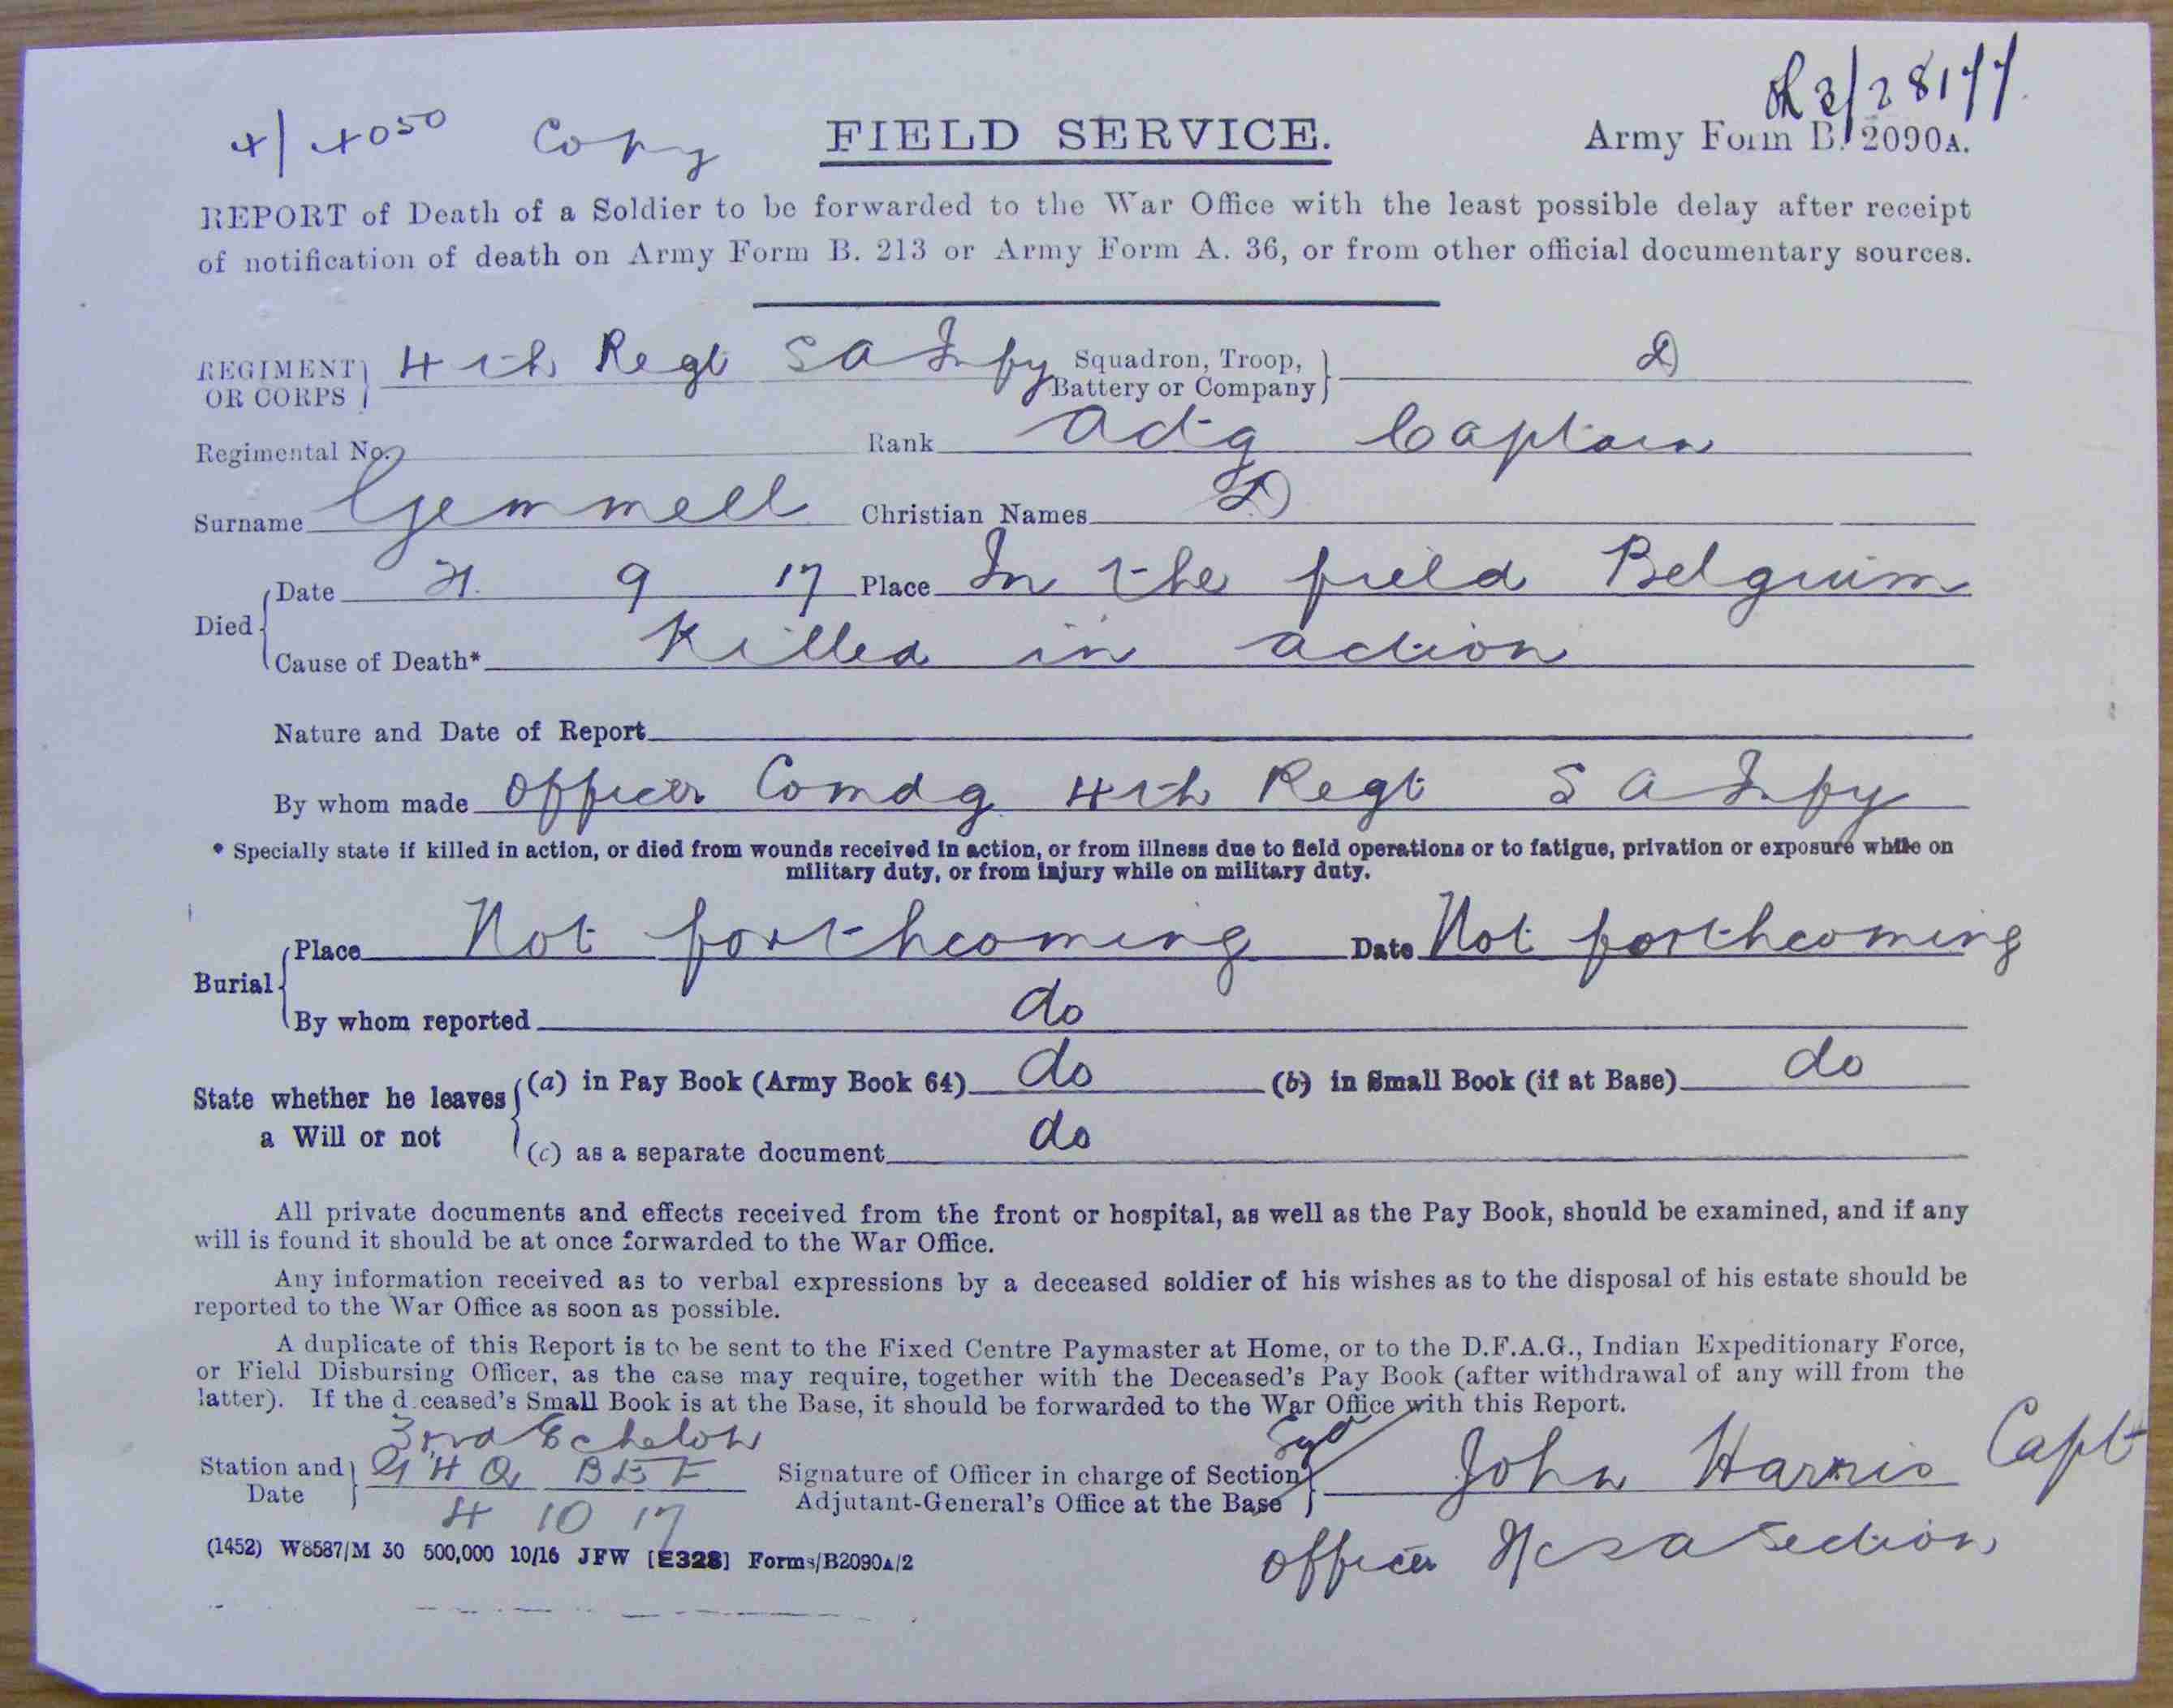 4/4050 Copy FIELD SERVICE. Army Form B. 2090A.
REPORT of Death of a Soldier to be forwarded to the War Office with the least possible delay after receipt
of notification of death on Army Form B. 213 or Army Form A. 36, or from other official documentary sources.
REGIMENT OR CORPS 4th Regt S A Infy Squadron, Troop, Battery or Company D
Regimental No. Rank Actg Captain
Surname Gemmell Christian Names D
Died Date 21. 9 17 Place In the field Belgium
Cause of Death* Killed in action
Nature and Date of Report
By whom made Officer Comdg 4th Regt S A Infy
* Specially state if killed in action, or died from wounds received in action, or from illness due to field operations or to fatigue, privation or exposure while on
military duty, or from injury while on military duty.
Burial Place Not forthcoming Date Not forthcoming
By whom reported do
State whether he leaves a Will or not (a) in Pay Book (Army Book 64) do (b) in Small Book (if at Base) do
(c) as a separate document do
All private documents and effects received from the front or hospital, as well as the Pay Book, should be examined, and if any
will is found it should be at once forwarded to the War Office.
Any information received as to verbal expressions by a deceased soldier of his wishes as to the disposal of his estate should be
reported to the War Office as soon as possible.
A duplicate of this Report is to be sent to the Fixed Centre Paymaster at Home, or to the D.F.A.G., Indian Expeditionary Force,
or Field Disbursing Officer, as the case may require, together with the Deceased's Pay Book (after withdrawal of any will from the
latter). If the d ceased's Small Book is at the Base, it should be forwarded to the War Office with this Report.
3rd Echelon
Station and Date G H Q BEF Signature of Officer in charge of Section Adjutant-General's Office at the Base Sgd John Harris Capt
4 10 17
(1452) W8587/M 30 500,000 10/16 JFW [E328] Forms/B2090A/2 Officer i/c S A Section